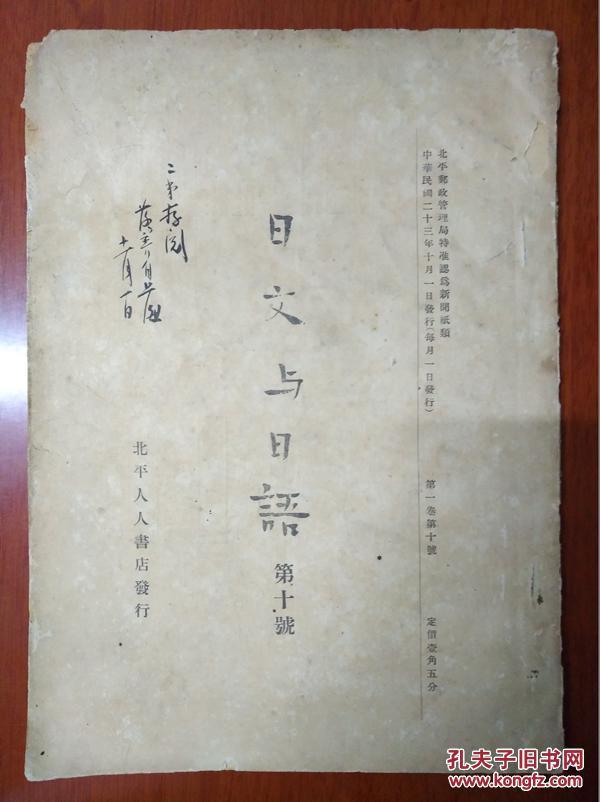 北平郵政管理局特准認爲新聞紙類
中華民國二十三年十月一日發行(每月一日發行)
第一卷第十號
定價壹角五分
日文与日語
第十號
二弟存閱
十一月一日
北平人人書店發行
孔夫子旧书网
www.kongfz.com